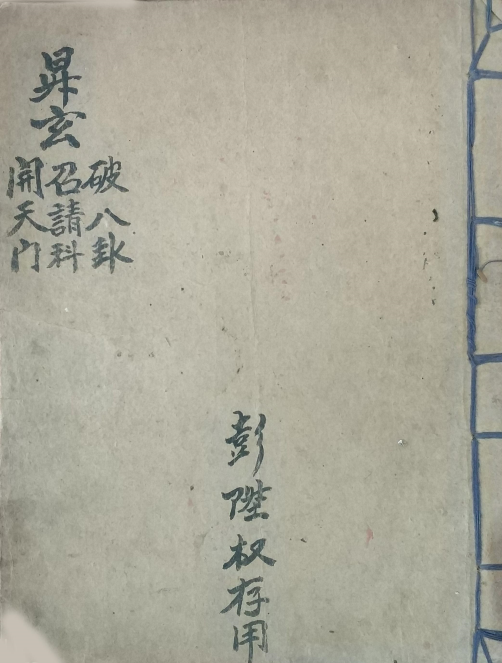 昇玄
破八卦
召請科
開天门
彭陞权存用